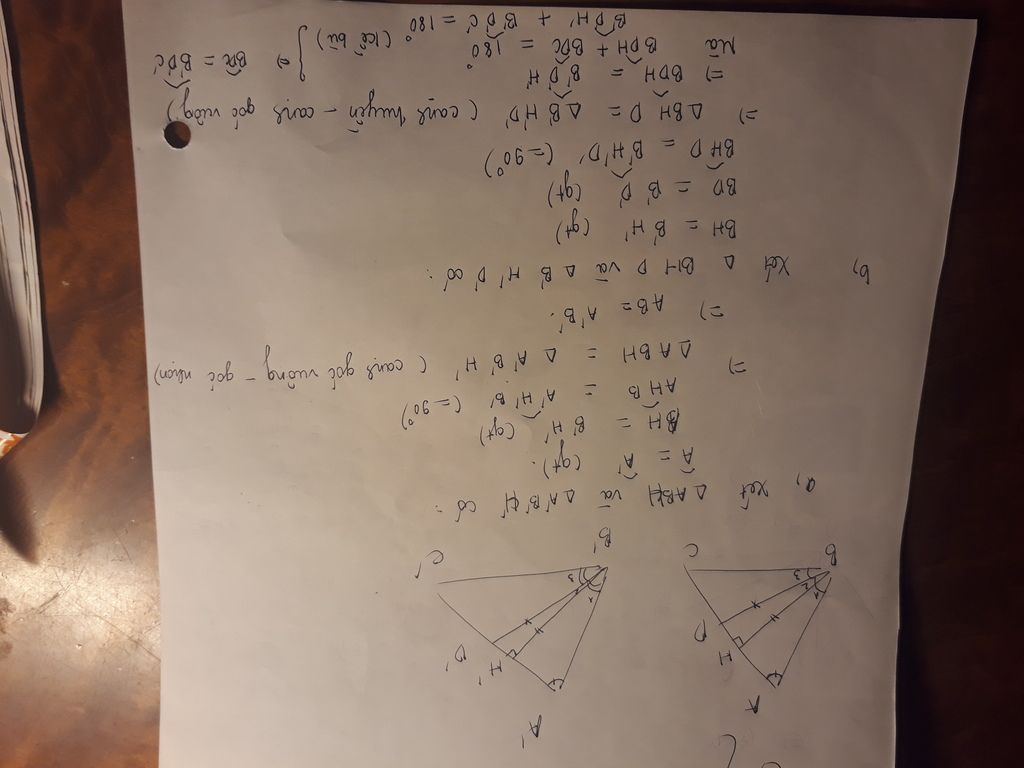 A
A'
H
D
H'
D'
B
C
B'
C'
1
2
3
3
a, Xét △ABH và △A'B'H' có :
Â = Â' (gt).
BH = B'H' (gt)
AHB = A'H'B' (= 90°)
=> △ABH = △A'B'H' (cạnh góc vuông - góc nhọn)
=> AB = A'B'.
b, Xét △ BHD và △ B'H'D' có :
BH = B'H' (gt)
BD = B'D' (gt)
BHD = B'H'D' (= 90°)
=> △BHD = △B'H'D' (cạnh huyền - cạnh góc vuông)
=> BDH = B'D'H'
Mà BDH + BDC = 180° (kề bù) } => BDC = B'D'C'
B'D'H' + B'D'C' = 180°